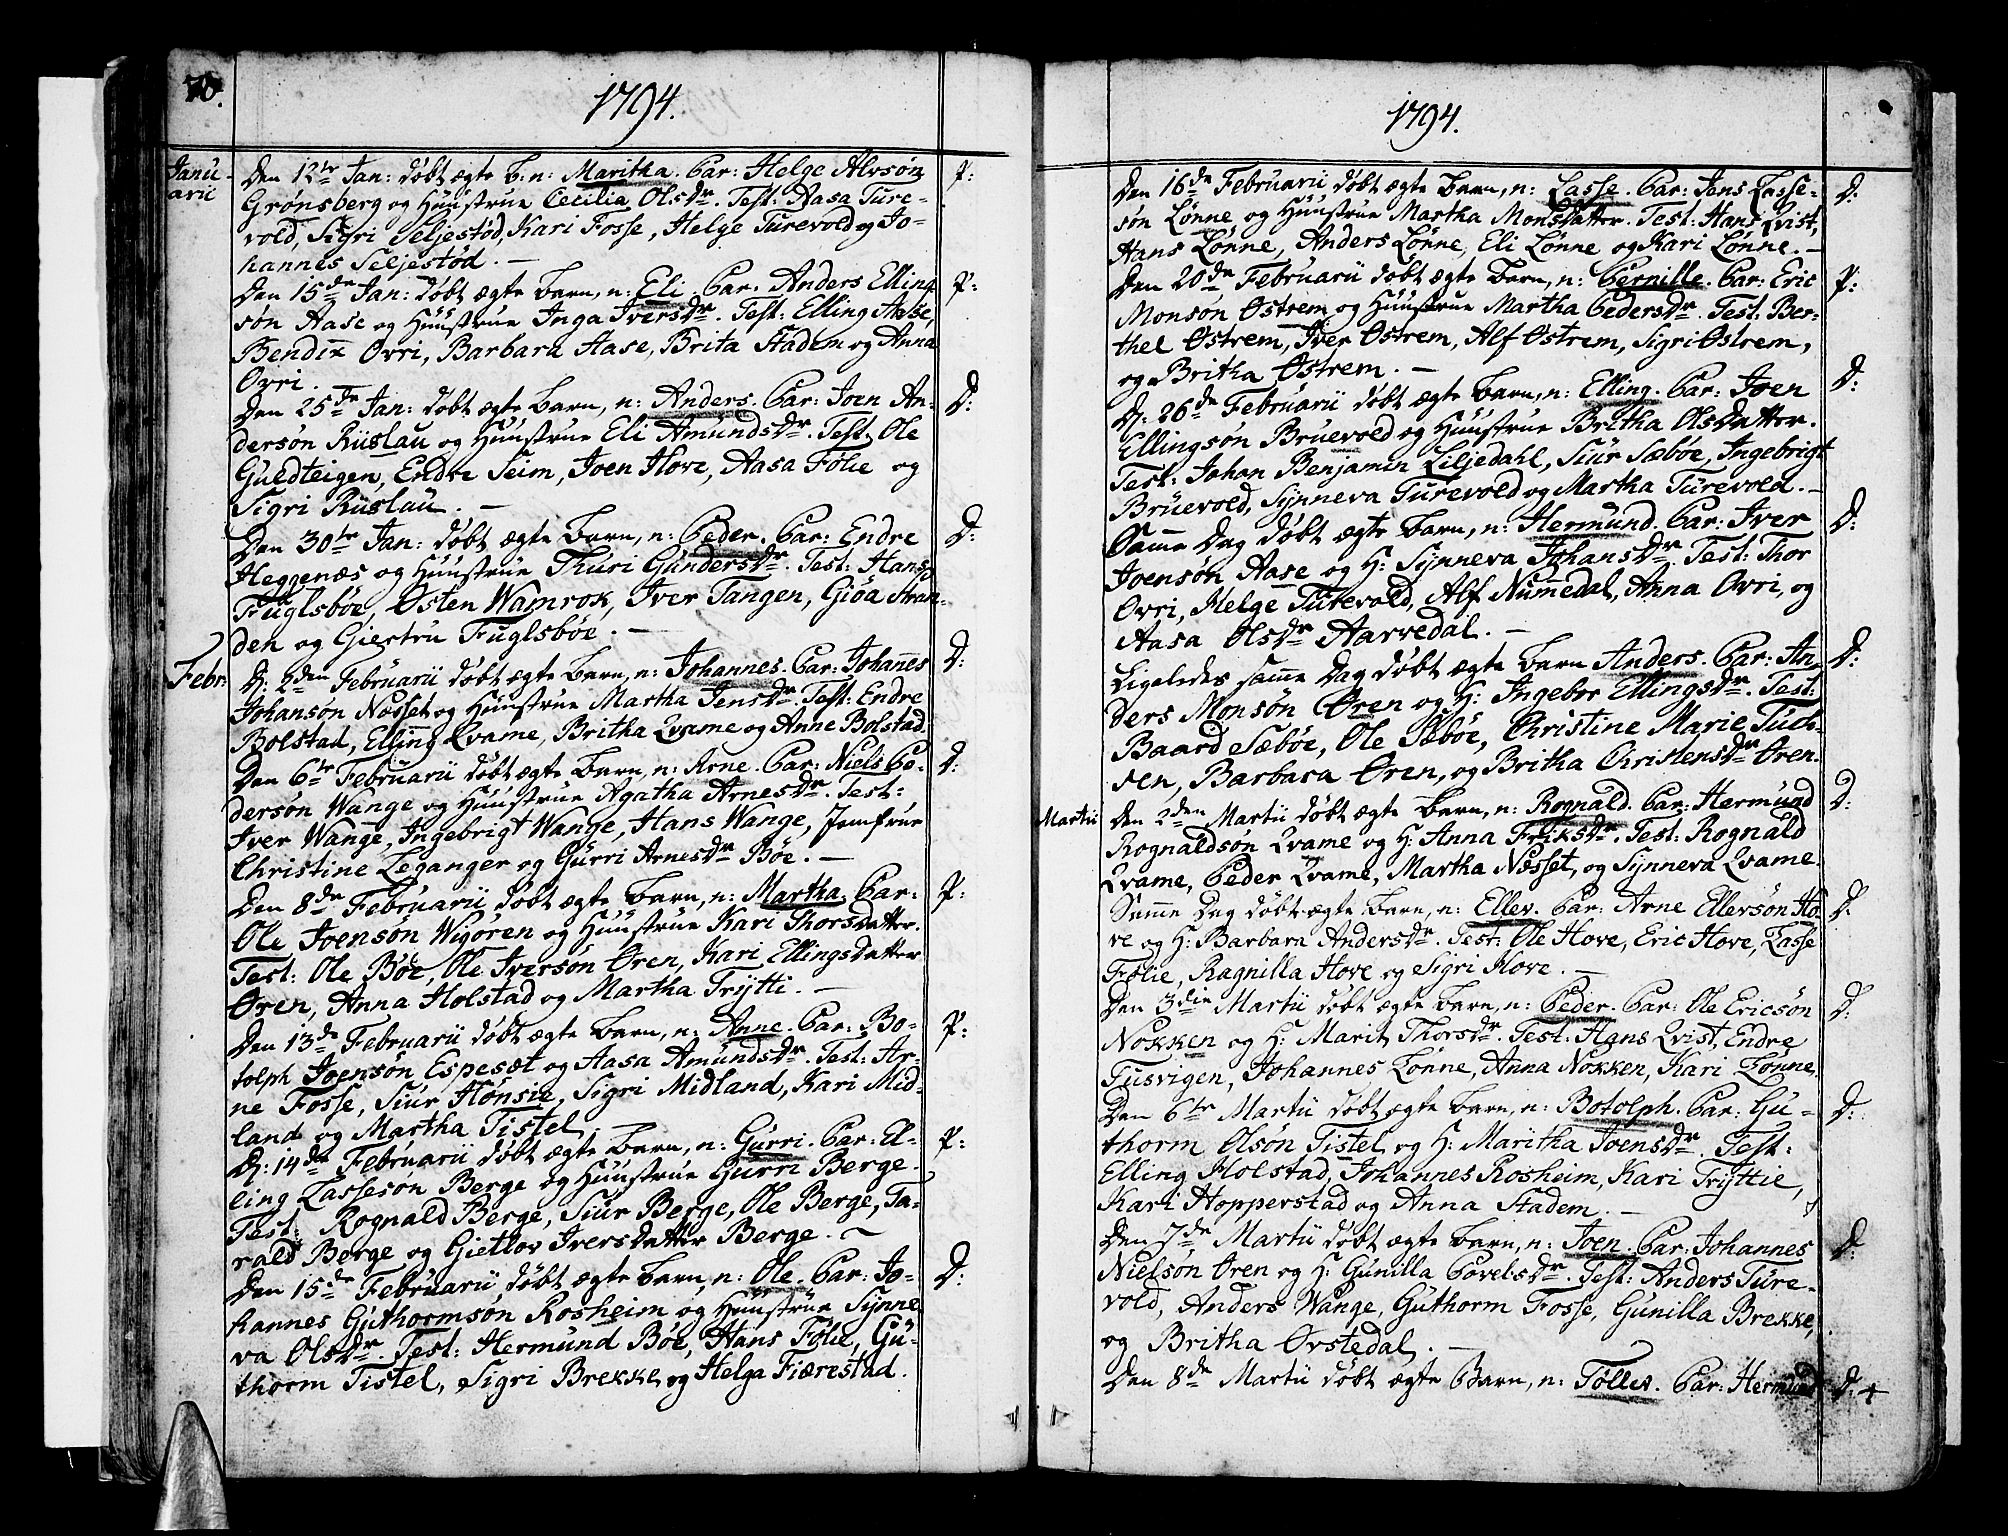 70.
1794.
Janu-
arii
Den 12te Jan: döbt ægte B: n: Maritha. Par: Helge Alvsön
Grönsberg og Huustrue Cecilia Olsdr. Test: Aasa Ture-
vold, Sigri Seljestöd, Kari Fosse, Helge Turevold og Jo-
hannes Seljestöd. —
P:
Den 15de Jan: döbt ægte Barn, n: Eli. Par: Anders Elling
sön Aase og Huustrue Inga Iversdr. Test: Elling Aase,
Bendix Ovri, Barbara Aase, Brita Stadem og Anna
Ovri.
P:
Den 25de Jan: döbt ægte Barn, n: Anders. Par: Joen An-
dersön Rüslau og Huustrue Eli Amundsdr. Test: Ole
Guldteigen, Endre Seim, Joen Hove, Aasa Fölie og
Sigri Rüslau. —
D:
Den 30te Jan: döbt ægte Barn, n: Peder. Par: Endre
Heggenæs og Huustrue Thuri Gundersdr. Test: Hans
Fuglsböe, Östen Wamrok, Iver Tangen, Giöa Stran-
den og Giertru Fuglsböe. —
D:
Febr:
D: 2den Februarii döbt ægte Barn, n: Johannes. Par: Johannes
Johansön Næsset og Huustrue Martha Jensdr. Test: Endre
Bolstad, Elling Qvame, Britha Qvame og Anne Bolstad.
D:
Den 6te Februarii döbt ægte Barn, n: Arne. Par: Niels Pe-
dersön Wange og Huustrue Agatha Arnesdr. Test:
Iver Wange, Ingebrigt Wange, Hans Wange, Jomfrue
Christine Leganger og Gurri Arnesdr Böe. —
D:
Den 8de Februarii döbt ægte Barn, n: Martha. Par:
Ole Joensön Wigören og Huustrue Kari Thorsdatter.
Test: Ole Böe, Ole Iversön Ören, Kari Ellingsdatter
Ören, Anna Holstad og Martha Trytti. —
P:
Den 13de Februarii döbt ægte Barn, n: Anne. Par: Bo-
tolph Joensön Espesæt og Aasa Amundsdr. Test: Ar-
ne Fosse, Siur Hönsie, Sigri Midland, Kari Mid-
land og Martha Tistel. —
P:
D: 14de Februarii döbt ægte Barn, n: Gurri. Par: El-
ling Lasseson Berge og Huustrue Gurri Berge.
Test: Rognald Berge, Siur Berge, Ole Berge, Ta-
rald Berge og Gietlov Iversdatter Berge. —
P:
Den 15de Februarii, döbt ægte Barn, n: Ole. Par: Jo-
hannes Guthormsön Rosheim og Huustrue Synne
va Olsdr. Test: Hermund Böe, Hans Fölie, Gu-
thorm Tistel, Sigri Brekke og Helga Fiærestad.
D:
1794.
Den 16de Februarii döbt ægte Barn, n: Lasse. Par: Jans Lasse-
sön Lönne og Huustrue Martha Monsdatter. Test: Hans Qvist,
Hans Lönne, Anders Lönne, Eli Lönne og Kari Lönne. —
D:
Den 20de Februarii döbt ægte Barn, n: Pernille. Par: Eric
Monsön Östrem og Huustrue Martha Pedersdr. Test: Ber-
thel Östrem, Iver Östrem, Alf Östrem, Sigri Östrem,
og Britha Östrem. —
P:
D: 26de Februarii döbt ægte Barn, n: Elling. Par: Joen
Ellingsön Bruevold og Huustrue Britha Olsdatter.
Test: Johan Benjamin Liljedahl, Siur Sæböe, Ingebrigt
Bruevold, Synneva Turevold og Martha Turevold. —
D:
Samme Dag döbt ægte Barn, n: Hermund. Par: Iver
Joensön Aase og H: Synneva Johansdr. Test: Thor
Ovri, Helge Turevold, Alf Numedal, Anna Ovri, og
Aasa Olsdr Aarredal. —
D:
Ligeledes samme Dag döbt ægte Barn Anders. Par: An-
ders Monsön Ören og H: Ingebor Ellingsdr. Test:
Baard Sæböe, Ole Sæböe, Christine Marie Tuch-
sen, Barbara Ören, og Britha Christensdr Ören.
D:
Martii
Den 2den Martii döbt ægte Barn, n: Rognald. Par: Hermund
Rognaldsön Qvame og H: Anna Eriksdr. Test: Rognald
Qvame, Peder Qvame, Martha Næsset, og Synneva Qvame.
D:
Samme Dag döbt ægte Barn, n: Ellev. Par: Arne Ellersön Ho
ve og H: Barbara Andersdr. Test: Ole Hove, Eric Hove, Lasse
Fölie, Ragnilla Hove og Sigri Hove. —
D:
Den 3die Martii döbt ægte Barn, n: Peder. Par: Ole Ericsön
Nokken og H: Marit Thorsdr. Test: Hans Qvist, Endre
Tusvigen, Johannes Lönne, Anna Nokken, Kari Lönne.
D:
Den 6te Martii döbt ægte Barn, n: Botolph. Par: Gu-
thorm Olsön Tistel og H: Maritha Joensdr. Test:
Elling Holstad, Johannes Rosheim, Kari Tryttie,
Kari Hopperstad og Anna Stadem. —
D:
Den 7de Martii döbt ægte Barn, n: Joen. Par: Johannes
Nielsön Ören og H: Gunilla Povelsdr. Test: Anders Ture-
vold, Anders Wange, Guthorm Fosse, Gunilla Brekke,
og Britha Övstedal. —
D:
Den 8de Martii döbt ægte Barn, n: Töllev. Par: Hermund
D: +